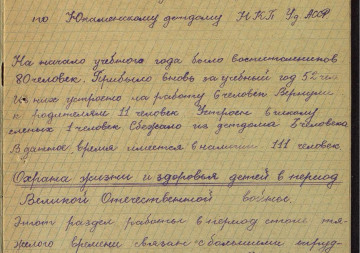 по Юкаменскому детдому НКП Уд АССР
На начало учебного года было воспитанников
80 человек. Прибыло вновь за учебный год 52 чел
Из них устроено на работу 6 человек Вернули
к родителям 11 человек Устроен в школу
слепых 1 человек Сбежало из детдома 3 человека
В данное время имеется в наличии 111 человек.
Охрана жизни и здоровья детей в период
Великой Отечественной войны.
Этот раздел работы в период столь тя-
желого времени связан с большими труд-